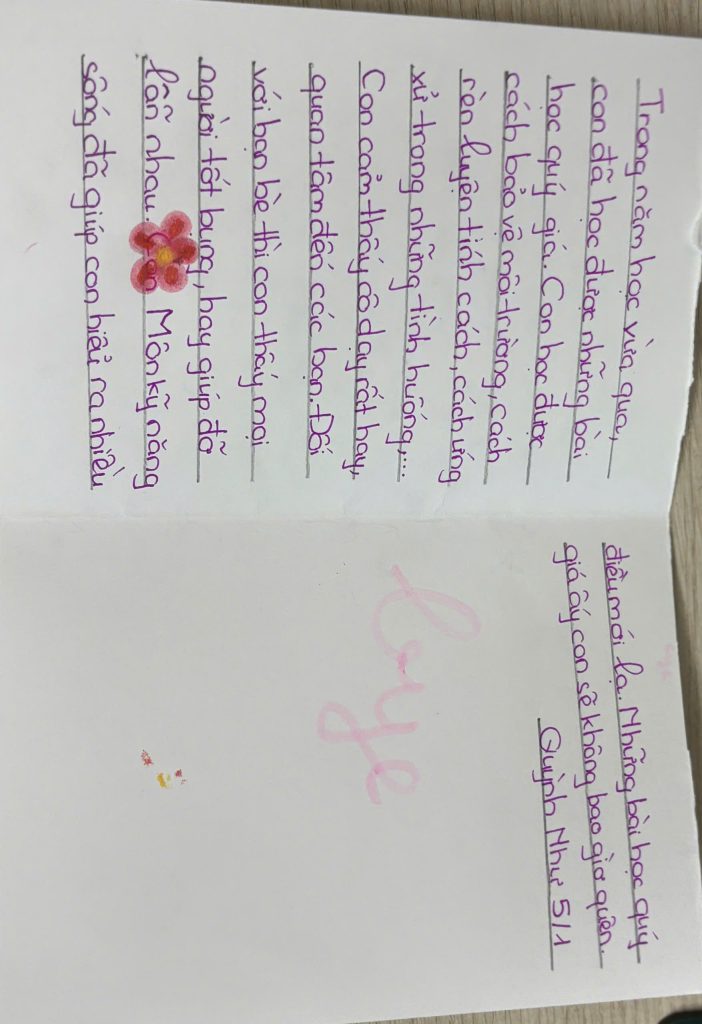 Trong năm học vừa qua,
con đã học được những bài
học quý giá. Con học được
cách bảo vệ môi trường, cách
rèn luyện tính cách, cách ứng
xử trong những tình huống,...
Con cảm thấy cô dạy rất hay,
quan tâm đến các bạn. Đối
với bạn bè thì con thấy mọi
người tốt bụng, hay giúp đỡ
lẫn nhau. Môn kỹ năng
sống đã giúp con hiểu ra nhiều
điều mới lạ. Những bài học quý
giá ấy con sẽ không bao giờ quên.
Quỳnh Như 5/1